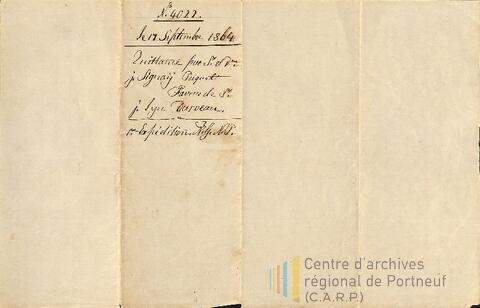 No. 4022.
le 17 Septembre 1864
Quittance par Sr. et De.
j. Signaÿ Paquet
Faveur de Sr.
j.
1re Expédition. N.P.
Centre d'archives
régional de Portneuf
(C.A.R.P.)